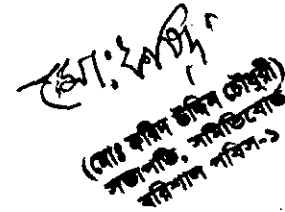 মোঃ ফরিদ
(মোঃ ফরিদ উদ্দিন চৌধুরী)
সভাপতি, সমিতিবোর্ড
বরিশাল পবিস-১